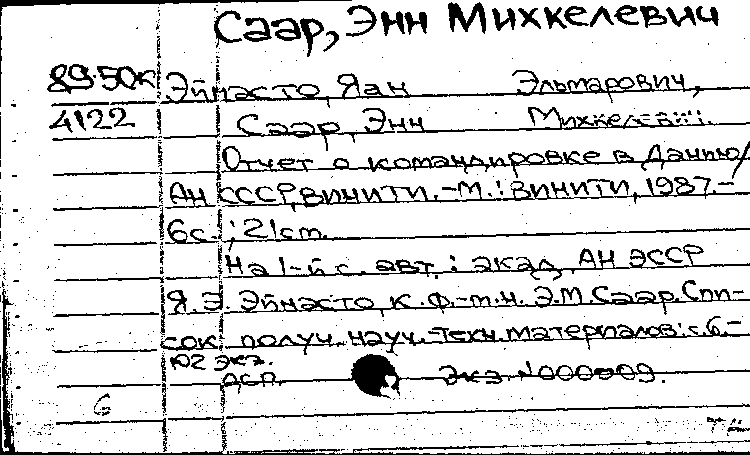 Саар, Энн Михкелевич
89-50к Эйнасто, Яан Эльмарович,
4122 Саар, Энн Михкелевич.
Отчет о командировке в Данию/
АН СССР, ВИНИТИ.-М.: ВИНИТИ, 1987.-
6с.; 21cm.
На 1-й с. авт.: акад. АН ЭССР
Я.Э. Эйнасто, к.ф.-м.н. Э.М. Саар. Спи-
сок получ. науч.-техн. материалов: с.6.-
102 экз.
ДСП. Экз. N000009.
6